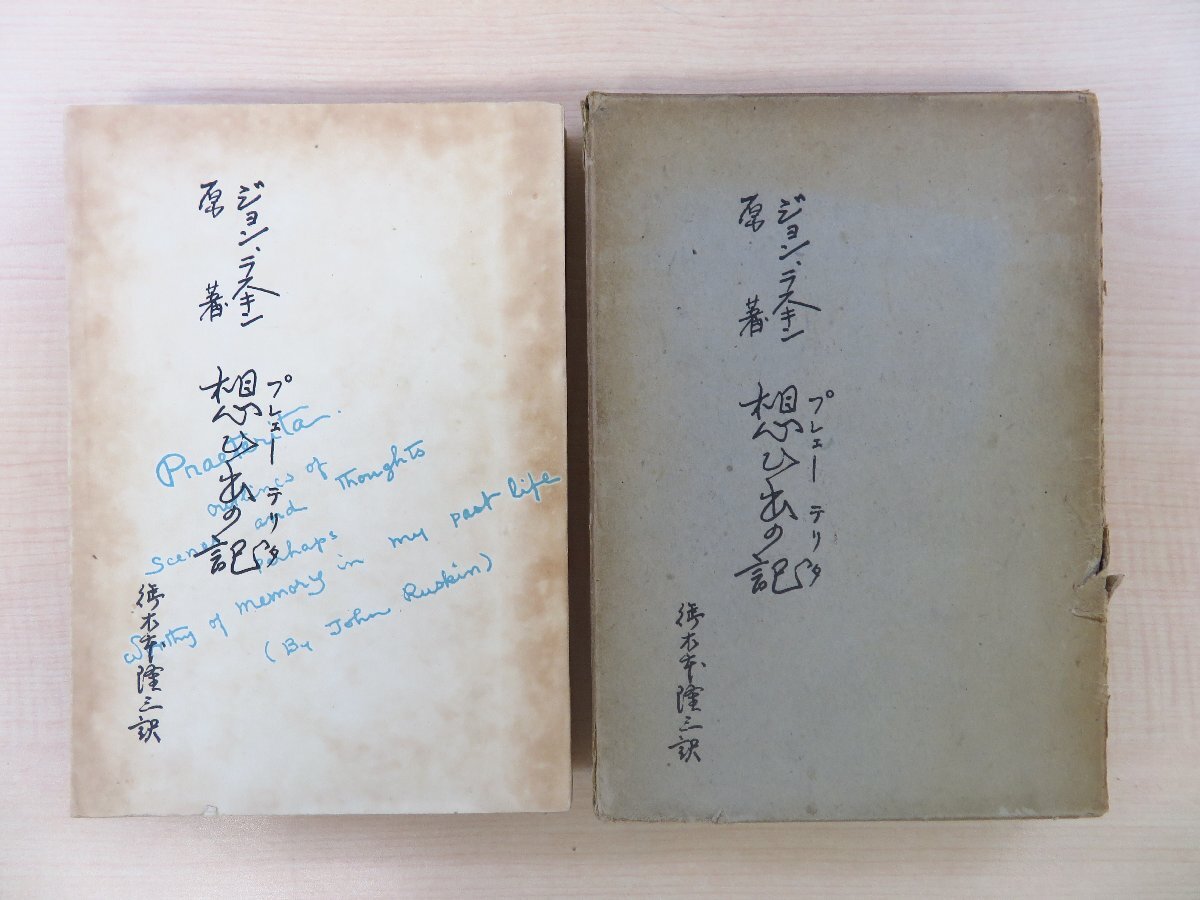 ジョン、ラスキン
原著
プレエーテリタ
想ひ出の記
御木本隆三訳
Praeterita.
outlines of
scenes and thoughts
perhaps
worthy of memory in my past life
(By John Ruskin)
ジョン、ラスキン
原著
プレエーテリタ
想ひ出の記
御木本隆三訳